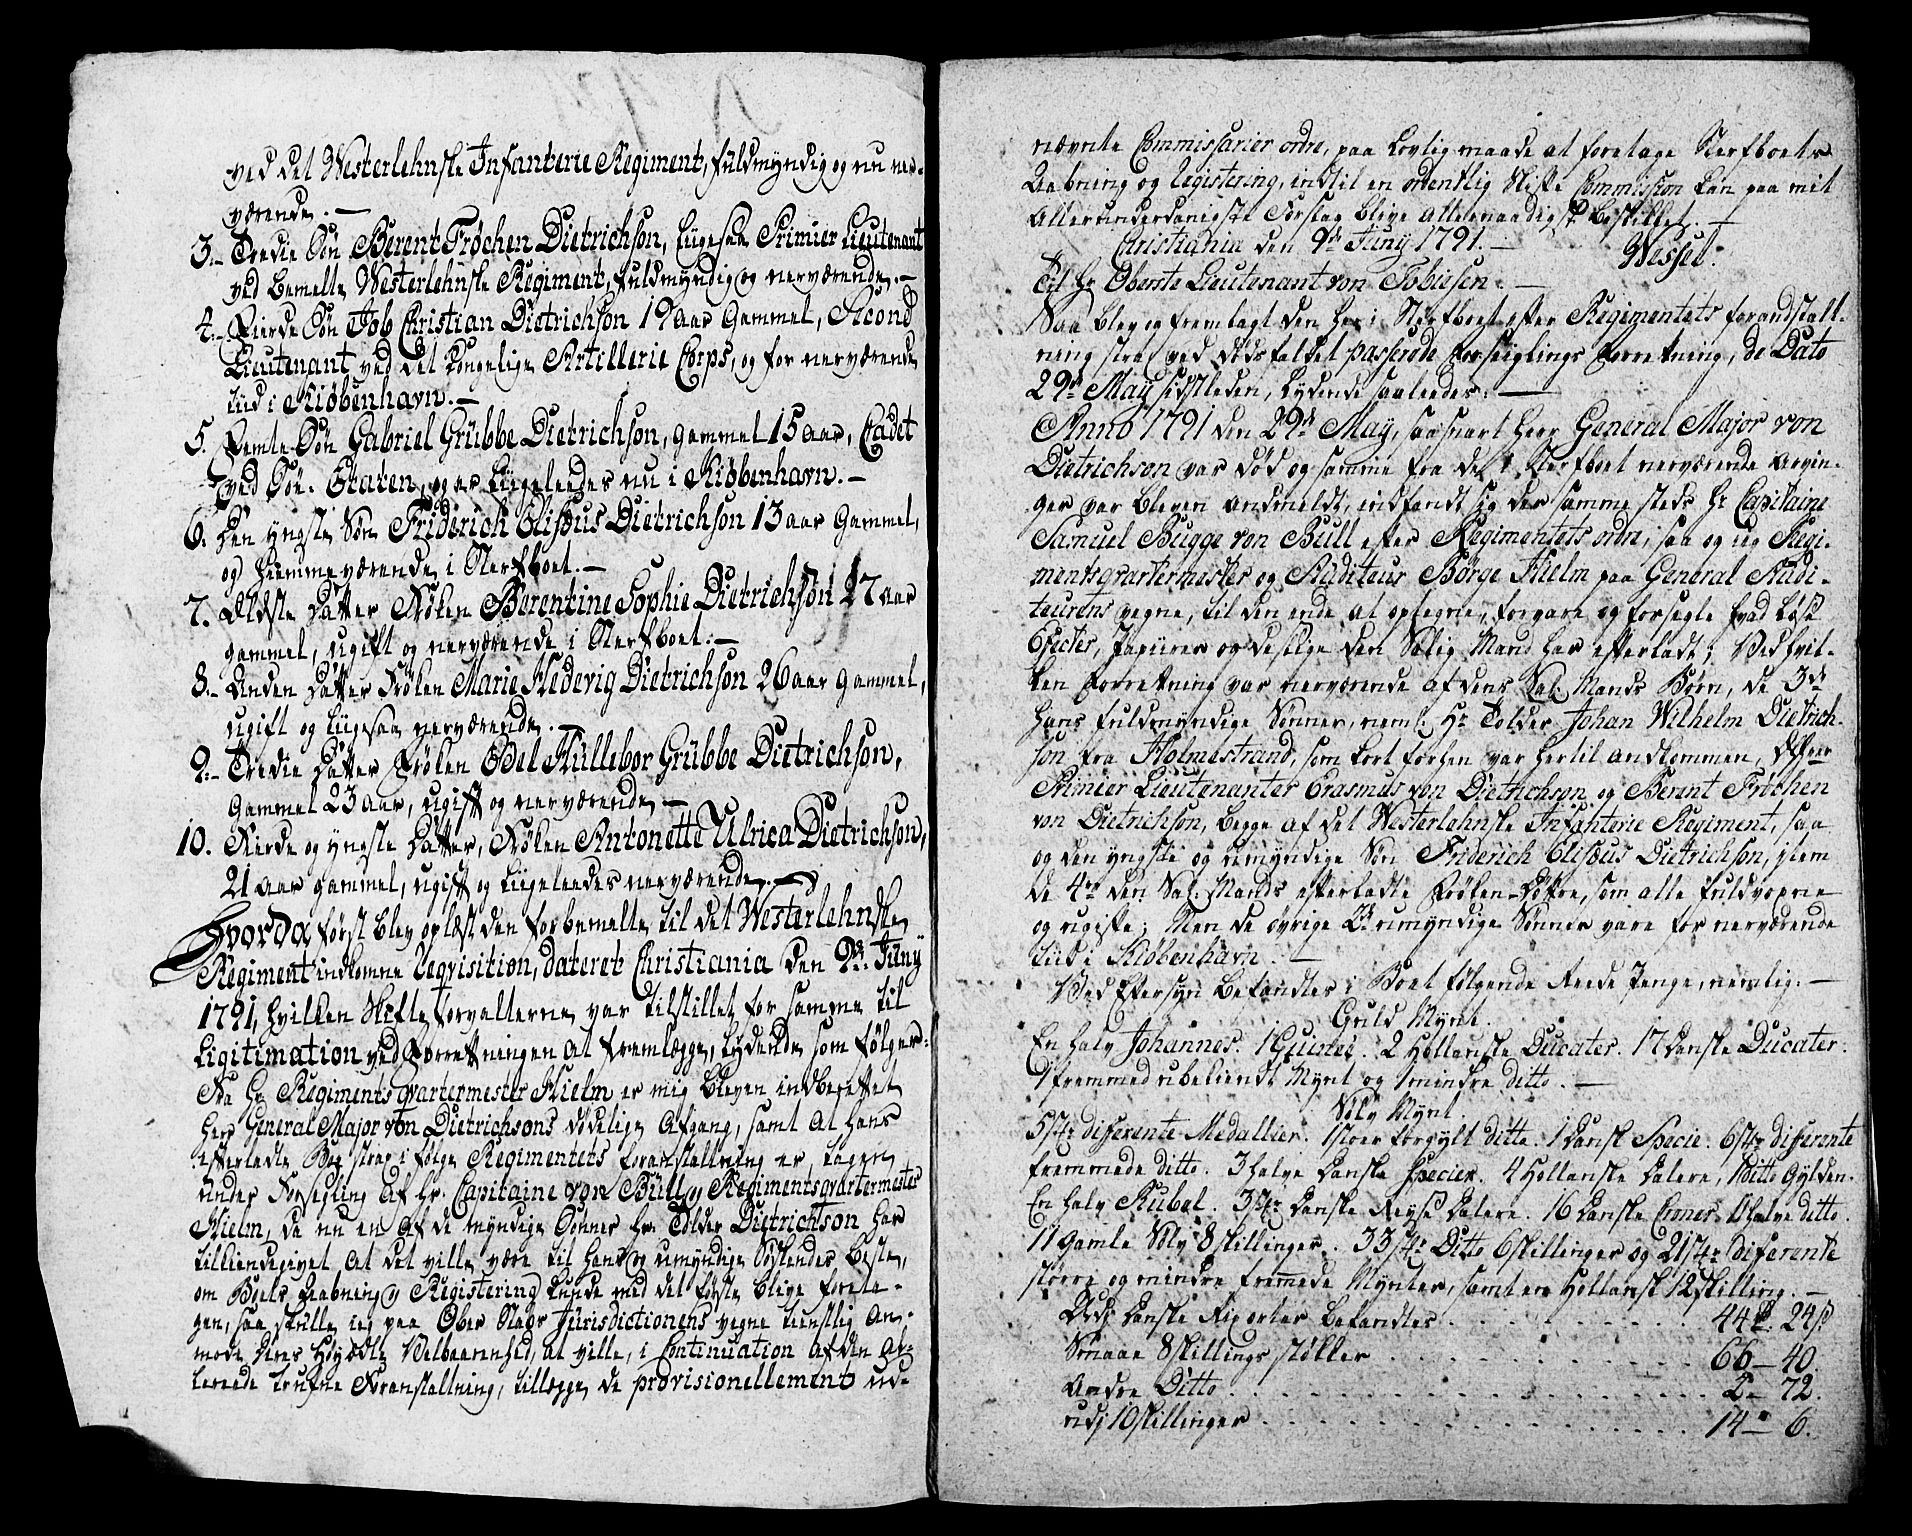 ved det Westerlehnske Infanterie Regiment, fuldmyndig og nu ner-
værende. —
3. Tredie Søn Berent Fröchen Dietrichson, liigesaa Primier Lieutenant
ved bemelte Westerlehnske Regiment, fuldmyndig og nerværende. —
4. Fierde Søn Job Christian Dietrichson 19 aar gammel, Second
Lieutenant ved det kongelige Artillerie Corps, og for nerværende
tiid i Kiøbenhavn. —
5. Femte Søn Gabriel Grübbe Dietrichson, gammel 15 aar, Cadet
ved Søe-Etaten, og er liigeleedes nu i Kiøbenhavn. —
6. Den yngste Søn Friderich Elisæus Dietrichson 13 aar gammel,
og hiemmeværende i Sterfboet. —
7. Ældste Datter Frøken Berentine Sophie Dietrichson 27 aar
gammel, ugift og nerværende i Sterfboet. —
8. Anden Datter Frøken Marie Hedevig Dietrichson 26 aar gammel,
ugift og liigesaa nerværende. —
9. Tredie Datter Frøken Edel Hüllebor Grübbe Dietrichson,
gammel 23 aar, ugift og nerværende —
10. Fierde og yngste Datter, Frøken Antonette Ulrica Dietrichson,
21 aar gammel, ugift og liigeleedes nerværende. —
Hvorda først blev oplæst den forbemelte til det Westerlehnske
Regiment indkomne Reqvisition, dateret Christiania den 9de Juny
1791, hvilken Skifteforvalterne var tilstillet for samme til
Legitimation ved Forretningen at fremlægge, lydende som følger:
Fra Hr Regimentsqvartermester Hielm er mig bleven indberettet
Herr General Major von Dietrichsons dødelige Afgang, samt at hans
efterladte Boe strax i følge Regimentets foranstaltning er tagen
under Forsegling af Hr. Capitaine von Büll og Regimentsqvartermester
Hielm, da nu en af de myndige Sønner Hr. Tolder Dietrichson har
tilkiendegivet at det ville være til hans og umyndige Søskendes beste,
om Boets Aabning og Registering kunde med det første blive foreta-
gen, saa skulle ieg paa Ober Krigs Jurisdictionens vegne tienstlig an-
mode Deres Høyædle Velbaarenhed, at ville, i Continuation af den al-
lereede trufne Foranstaltning, tillægge de provisionellement ud-
nævnte Commissarier ordre, paa lovlig maade at foretage Sterfboets
Aabning og Registering, indtil en ordentlig Skifte Commission kan paa mit
allerunderdanigste Forslag blive allernaadigst beskikket. —
Christiania den 9de Juny 1791. — Wessel.
Til Hr Oberste Lieutenant von Tobiesen. —
Saa blev og fremlagt den her i Sterfboet efter Regimentets foranstalt-
ning strax ved dødsfaldet passerede Forseiglings Forretning, de Dato
29de May sidstleden, lydende saaledes: —
Anno 1791 den 29de May, saasnart Herr General Major von
Dietrichson var død og samme fra de i Sterfboet nerværende arvin-
ger var bleven andmeldt, indfandt sig der samme steds Hr Capitaine
Samuel Bugge von Bull efter Regimentets ordre, saa og ieg Regi-
mentsqvartermester og Auditeur Børge Hielm paa General Audi-
teurens vegne, til den ende at optegne, forvare og forsegle hvad løse
Effecter, Papiirer og deslige den Salig Mand har efterladt; Ved hvil-
ken Forretning var nerværende af dend Sal. Mands Børn, de 3de
hans fuldmyndige Sønner, neml. Hr Tolder Johan Wilhelm Dietrich-
son fra Holmestrand, som kort forhen var hertil andkommen,
Primier Lieutenanter Erasmus von Dietrichson og Berent Fröchen
von Dietrichson, begge af det Westerlehnske Infanterie Regiment, saa
og den yngste og umyndige Søn Friderich Elisæus Dietrichson, item
de 4re den Sal. Mands efterladte Frøken-Døttre, som alle fuldvoxne
og ugifte; Men de øvrige 2de umyndige Sønner vare for nerværende
tiid i Kiøbenhavn. —
Ved Eftersyn befandtes i Boet følgende Reede Penge, nemlig: —
Guld Mynt.
En halv Johannes. 1 Guinee. 2 Hollanske Ducater. 17 Danske Ducater.
1 fremmed ubekiendt Mynt og 1 mindre ditto. —
Sølv Mynt.
5 Stk: diferente Medallier. 1 stoer forgylt ditto. 1 Dansk Specie. 6 Stk: diferente
fremmede ditto. 3 halve Danske Species. 4 Hollanske Dalere, 1 ditto Gylden.
En halv Rubel. 3 Stk: Danske Reyse Dalere. 16 Danske Croner. 1 halve ditto.
11 gamle Sølv 8skillinger. 33 Stk: Ditto 6skillinger og 21 Stk: diferente
større og mindre fremmede Mynter, samt en Hollansk 12skilling. —
Udj Danske Rixorter befandtes . . . . . . 44 Rd. 24 ß
Smaae 8skillings støkker . . . . . . 66 — 40.
Andre Ditto . . . . . . 2 — 72.
udj 10skillinger . . . . . . 14 — 6.